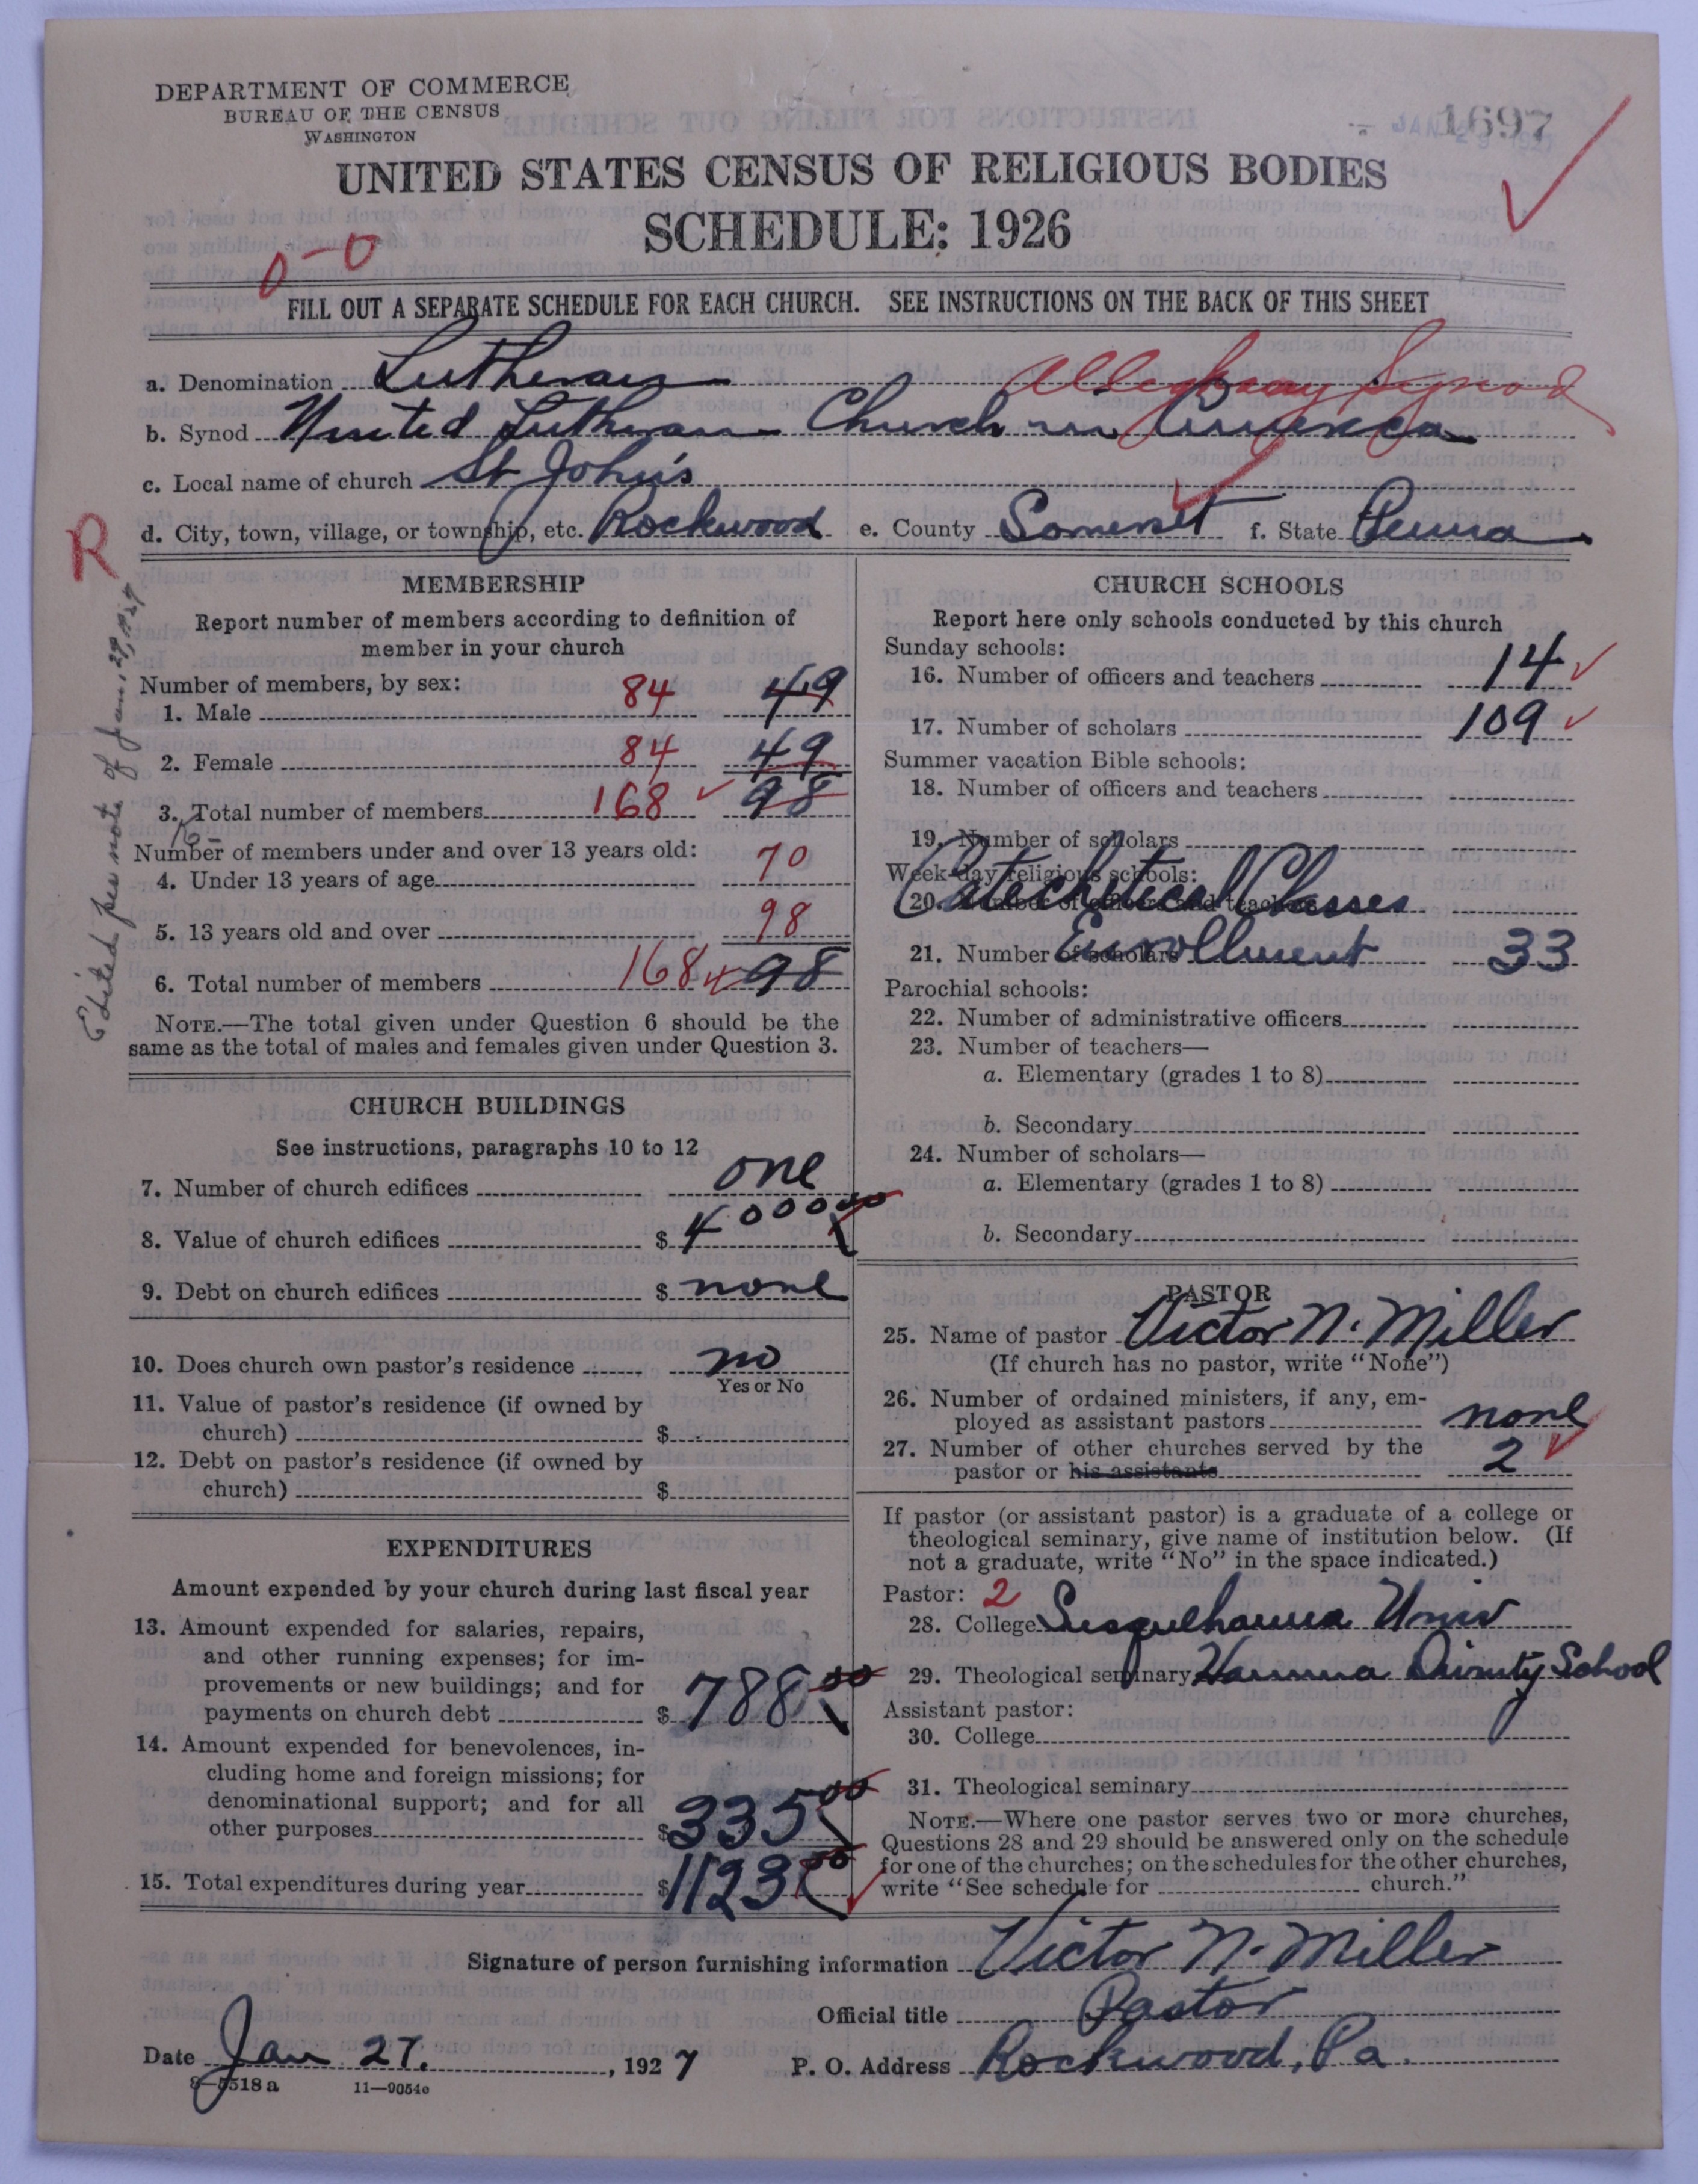 DEPARTMENT OF COMMERCE
BUREAU OF THE CENSUS
WASHINGTON
1697
UNITED STATES CENSUS OF RELIGIOUS BODIES
SCHEDULE: 1926
0-0
FILL OUT A SEPARATE SCHEDULE FOR EACH CHURCH. SEE INSTRUCTIONS ON THE BACK OF THIS SHEET
Alleghany Synod
a. Denomination Lutheran
b. Synod United Lutheran Church in America
c. Local name of church St John's
d. City, town, village, or township, etc. Rockwood e. County Somerset f. State Penna
R
Edited per note of Jan. 29, 1927
MEMBERSHIP
Report number of members according to definition of
member in your church
Number of members, by sex:
1. Male 84 49
2. Female 84 49
3. Total number of members 168 98
Number of members under and over 13 years old:
4. Under 13 years of age 70
5. 13 years old and over 98
6. Total number of members 168 98
NOTE.—The total given under Question 6 should be the
same as the total of males and females given under Question 3.
CHURCH BUILDINGS
See instructions, paragraphs 10 to 12
7. Number of church edifices one
8. Value of church edifices $ 4000 00
9. Debt on church edifices $ none
10. Does church own pastor's residence no
Yes or No
11. Value of pastor's residence (if owned by
church) $
12. Debt on pastor's residence (if owned by
church) $
EXPENDITURES
Amount expended by your church during last fiscal year
13. Amount expended for salaries, repairs,
and other running expenses; for im-
provements or new buildings; and for
payments on church debt $ 788 00
14. Amount expended for benevolences, in-
cluding home and foreign missions; for
denominational support; and for all
other purposes $ 335 00
15. Total expenditures during year $ 1123 00
CHURCH SCHOOLS
Report here only schools conducted by this church
Sunday schools:
16. Number of officers and teachers 14
17. Number of scholars 109
Summer vacation Bible schools:
18. Number of officers and teachers
19. Number of scholars
Week-day religious schools:
20. Number of officers and teachers Catechetical Classes
21. Number of scholars Enrollment 33
Parochial schools:
22. Number of administrative officers
23. Number of teachers—
a. Elementary (grades 1 to 8)
b. Secondary
24. Number of scholars—
a. Elementary (grades 1 to 8)
b. Secondary
PASTOR
25. Name of pastor Victor N. Miller
(If church has no pastor, write "None")
26. Number of ordained ministers, if any, em-
ployed as assistant pastors none
27. Number of other churches served by the
pastor or his assistants 2
If pastor (or assistant pastor) is a graduate of a college or
theological seminary, give name of institution below. (If
not a graduate, write "No" in the space indicated.)
Pastor: 2
28. College Susquehanna Univ
29. Theological seminary Hamma Divinity School
Assistant pastor:
30. College
31. Theological seminary
NOTE.—Where one pastor serves two or more churches,
Questions 28 and 29 should be answered only on the schedule
for one of the churches; on the schedules for the other churches,
write "See schedule for church."
Signature of person furnishing information Victor N. Miller
Official title Pastor
Date Jan 27, 1927 P. O. Address Rockwood, Pa.
8—5518 a 11—9054